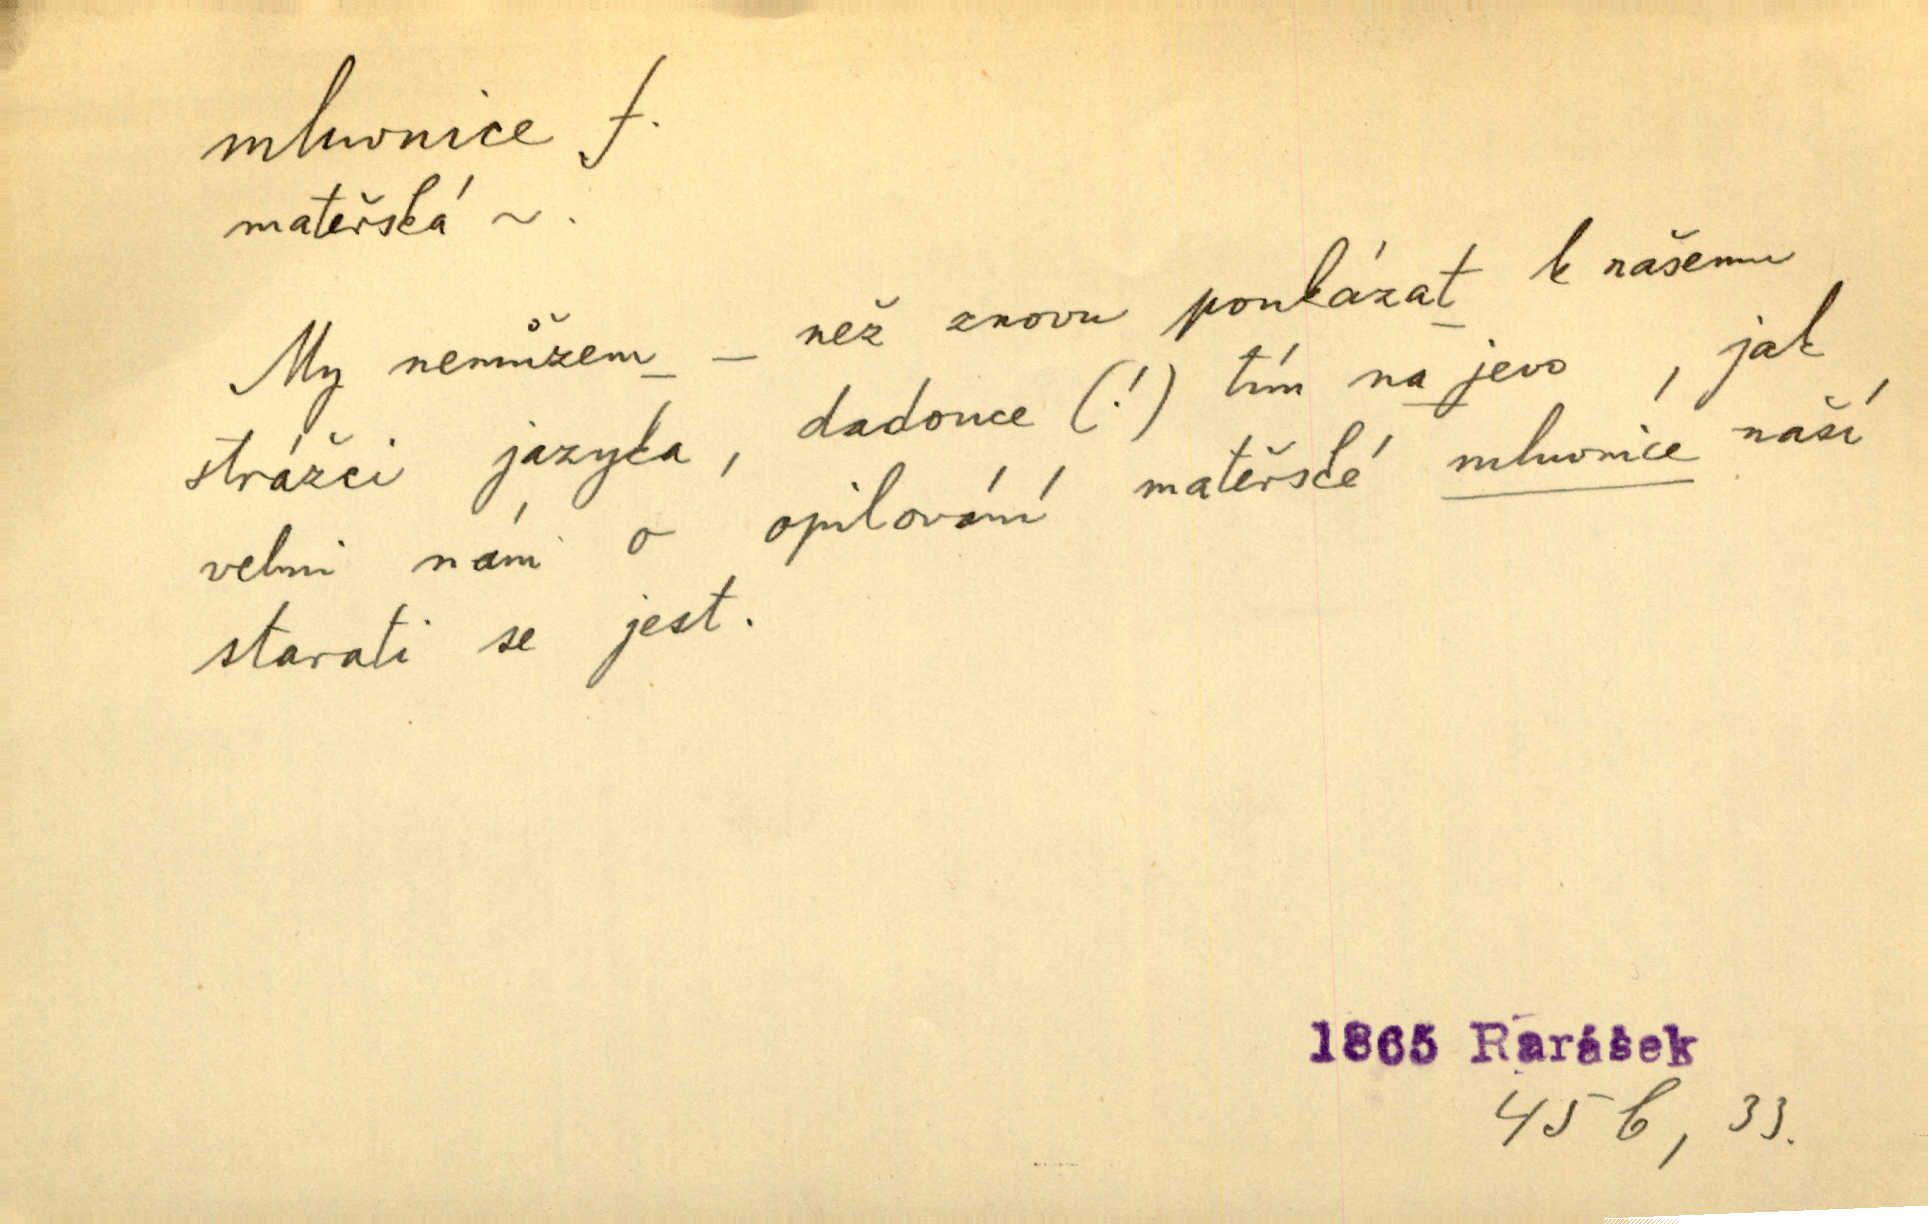 mluvnice f.
mateřská ~.
My nemůžem – než znovu poukázat k našemu
strážci jazyka, dadouce (!) tím na jevo, jak
velmi nám o opilování mateřské mluvnice naší,
starati se jest.
1865 Rarášek
45 b, 33.